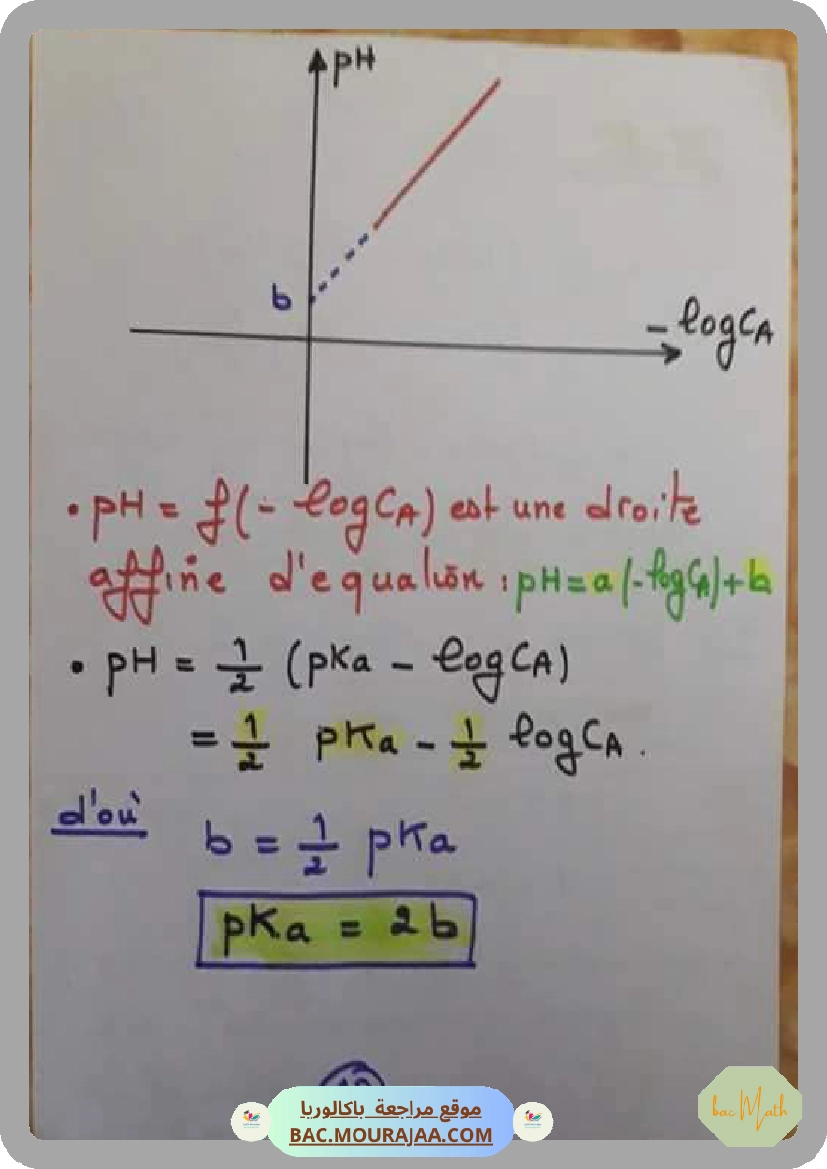 pH
b
- log CA
• pH = f(- log CA) est une droite
affine d'equation : pH = a (-log CA) + b
• pH = 1/2 (pKa - log CA)
= 1/2 pKa - 1/2 log CA .
d'où
b = 1/2 pKa
pKa = 2b
موقع مراجعة باكالوريا
BAC.MOURAJAA.COM
bac Math